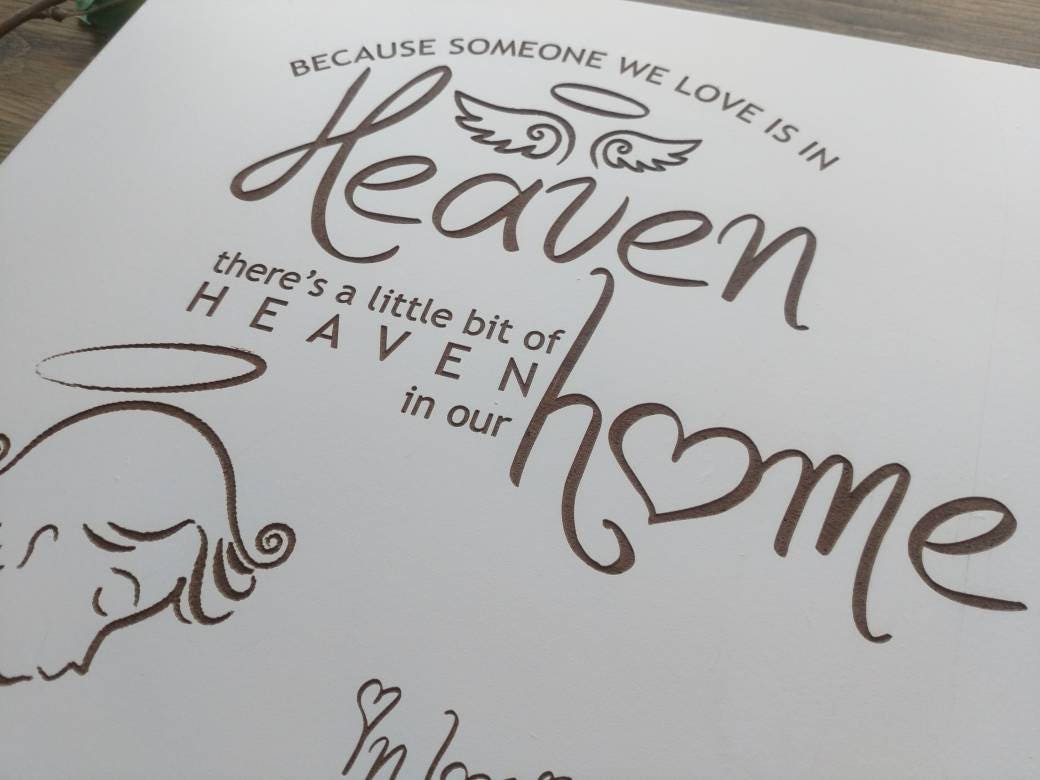 BECAUSE SOMEONE WE LOVE IS IN
Heaven
there's a little bit of
HEAVEN
in our
home
In